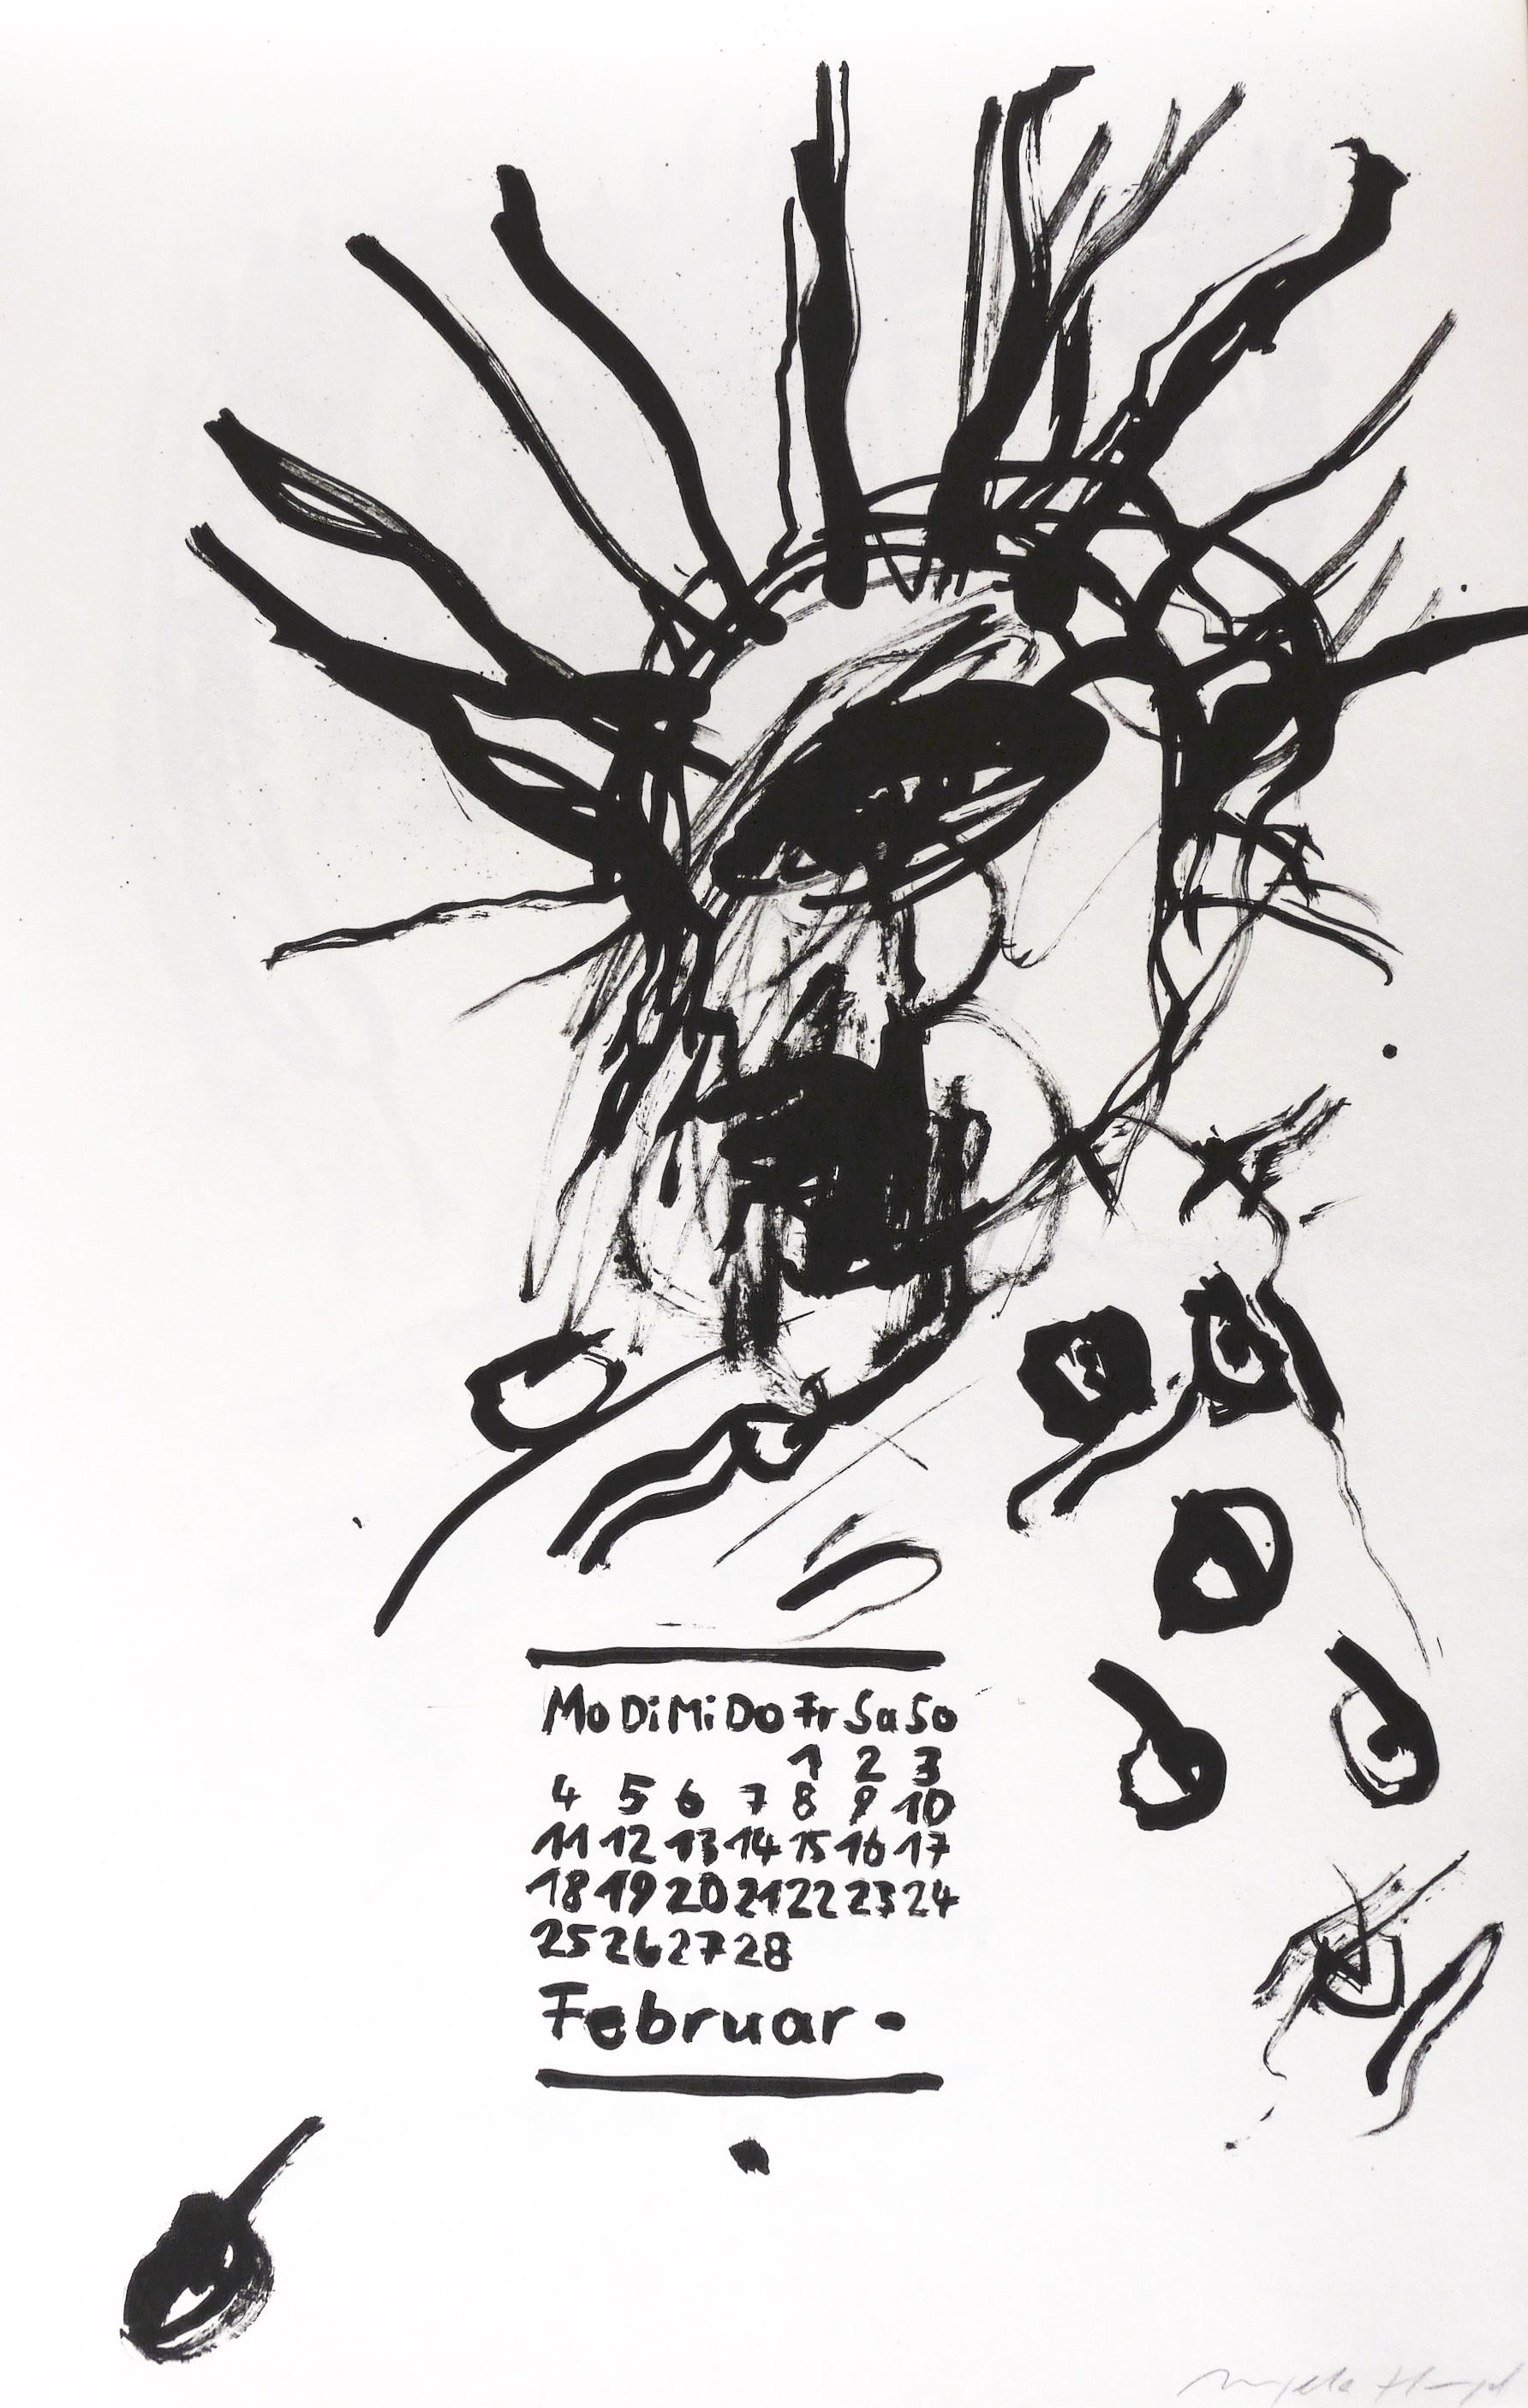 Mo Di Mi Do Fr Sa So
1 2 3
4 5 6 7 8 9 10
11 12 13 14 15 16 17
18 19 20 21 22 23 24
25 26 27 28
Februar -